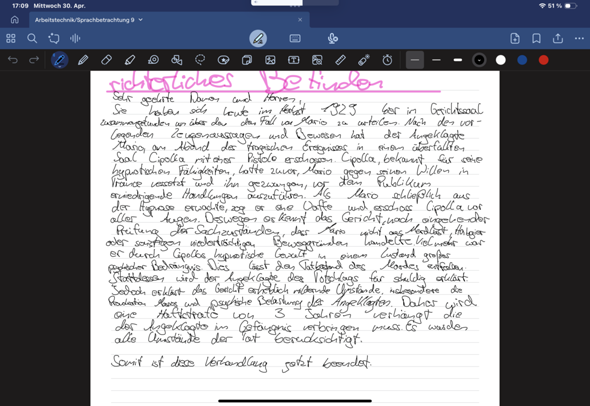 17:09 Mittwoch 30. Apr.
51 %
Arbeitstechnik/Sprachbetrachtung 9
richterliches Befinden
Sehr geehrte Damen und Herren,
Sie haben sich heute im Herbst 1929 hier in Gerichtssaal
um über den Fall von Mario zu urteilen. Nach den vor-
liegenden Zeugenaussagen und Beweisen hat der Angeklagte
Mario, am Abend des tragischen Ereignisses in einem überfüllten
Saal, Cipolla mit einer Pistole erschossen. Cipolla, bekannt für seine
hypnotischen Fähigkeiten, hatte zuvor, Mario gegen seinen Willen in
Trance versetzt und ihn gezwungen, vor dem Publikum
erniedrigende Handlungen auszuführen. Als Mario schließlich aus
der Hypnose erwachte, zog er eine Waffe und erschoss Cipolla vor
aller Augen. Deswegen erkennt das Gericht, nach eingehender
Prüfung der Sachzustände, das Mario nicht aus Mordlust, Habgier
oder sonstigen niederträchtigen Beweggründen handelte. Vielmehr war
er durch Cipollas hypnotische Gewalt in einem Zustand großer
psychischer Bedrängnis. Dies lässt den Tatbestand des Mordes entfallen.
Stattdessen wird der Angeklagte des Totschlags für schuldig erklärt.
Jedoch erklärt das Gericht erheblich mildernde Umstände, insbesondere die
Provokation Marios und psychische Belastung des Angeklagten. Daher wird
eine Haftstrafe von 3 Jahren verhängt die
der Angeklagte im Gefängnis verbringen muss. Es wurden
alle Umstände der Tat berücksichtigt.
Somit ist diese Verhandlung jetzt beendet.